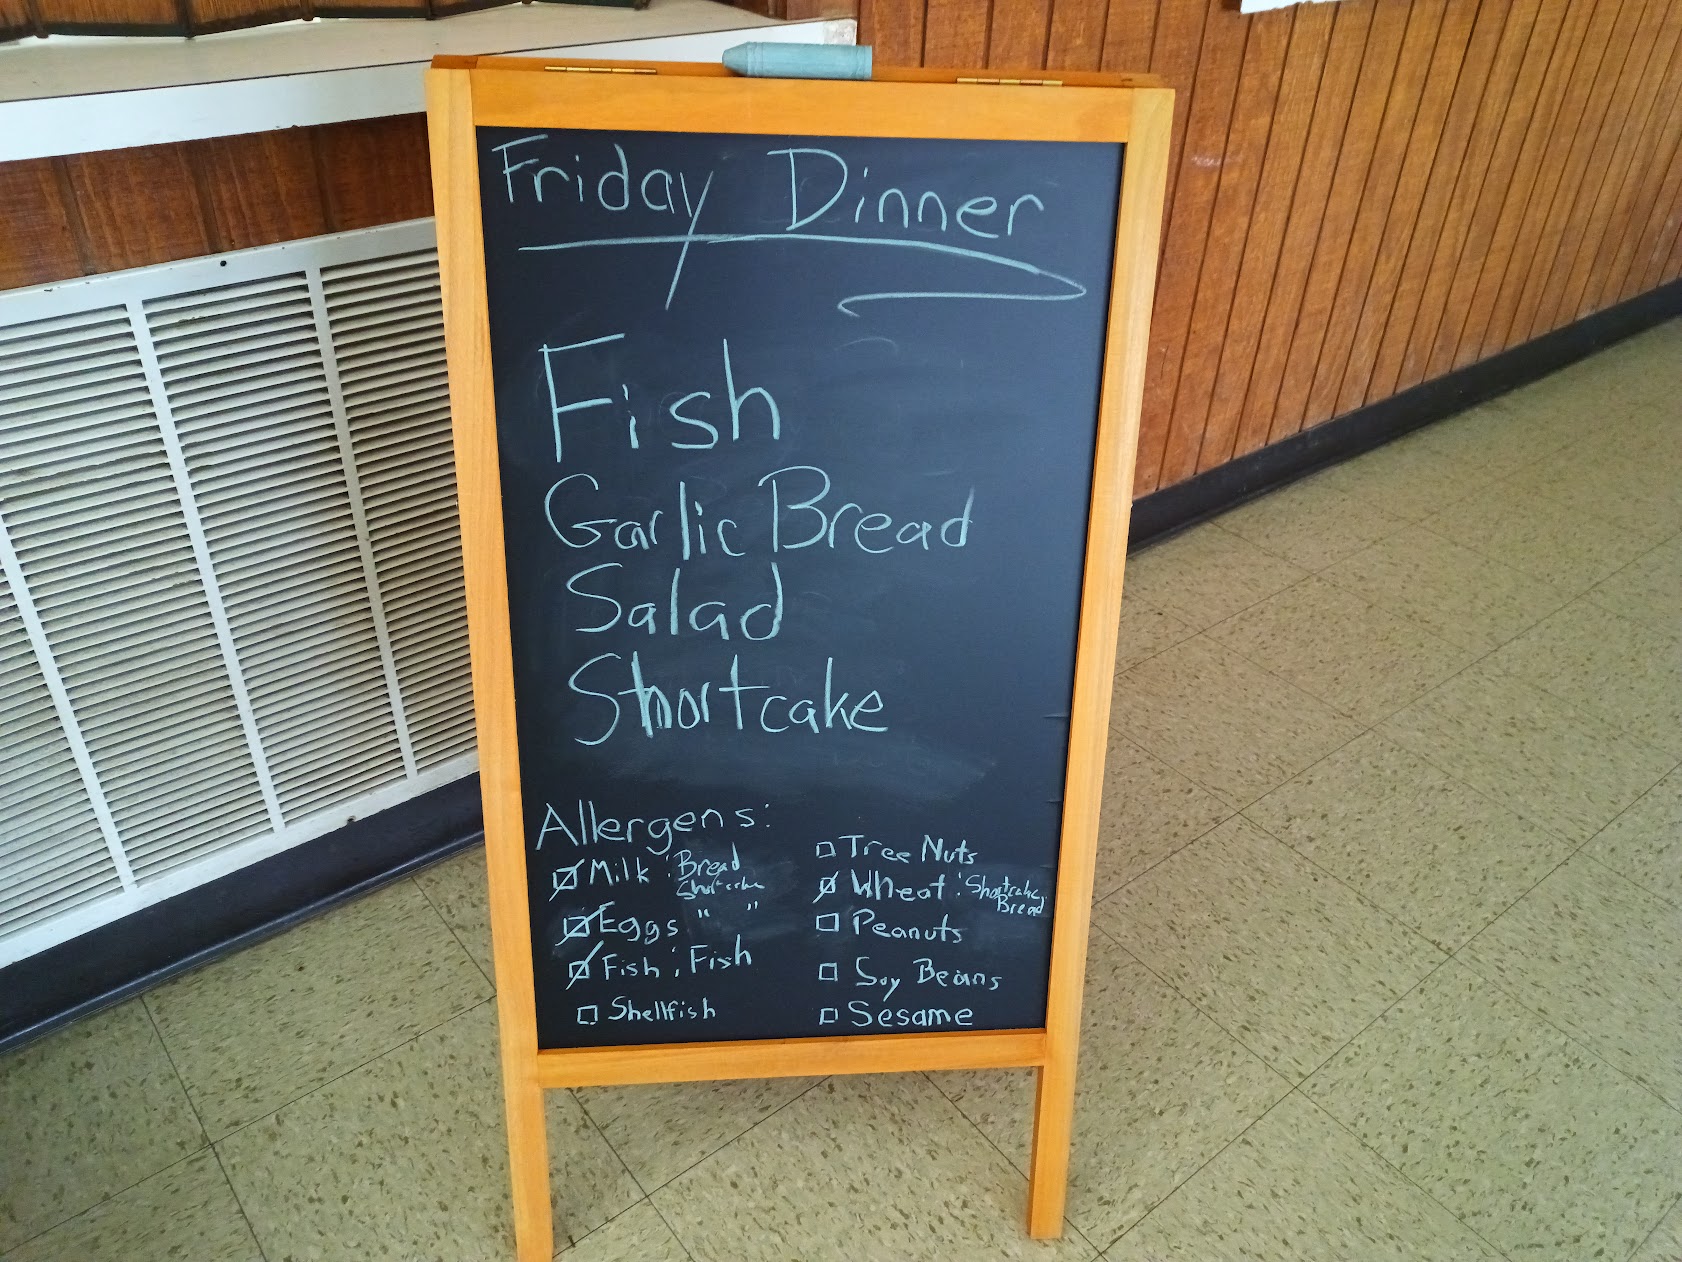 Friday Dinner
Fish
Garlic Bread
Salad
Shortcake
Allergens:
Milk : Bread
Shortcake
Eggs " "
Fish : Fish
Shellfish
Tree Nuts
Wheat : Shortcake,
Bread
Peanuts
Soy Beans
Sesame